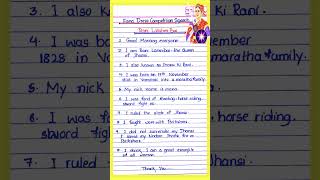 Fancy Dress Competition Speech
Rani Lakshmi Bai
1. Good Morning everyone
2. I am Rani Lakshmi bai the Queen
of Jhansi.
3. I also known as Jhansi Ki Rani.
4. I was born on 19th November
1828 in Varanasi into a maratha family.
5. My nick name is manu.
6. I was fond of shooting, horse riding,
sword fight etc.
7. I ruled the state of Jhansi.
8. I fought wars with Britishers.
9. I did not surrender my Jhansi
to
10. I think, I am a great example
of all woman.
Thank You
3. I also k
Ki Rani.
4. I was
mber
1828 in V
maratha family.
5. My nick
6. I was f
horse riding,
sword figh
7. I ruled
Jhansi.